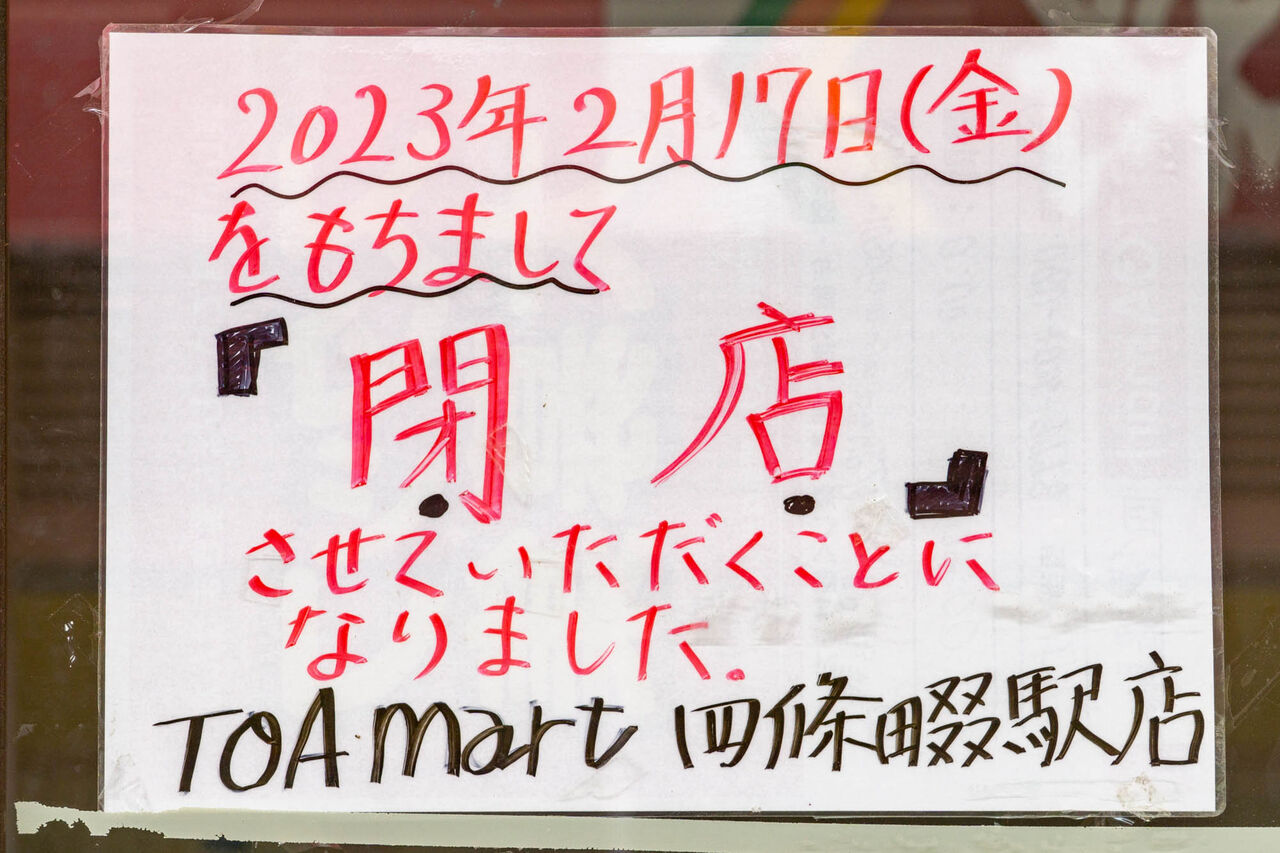 2023年2月17日(金)
をもちまして
『閉店』
させていただくことに
なりました。
TOAmart 四條畷駅店